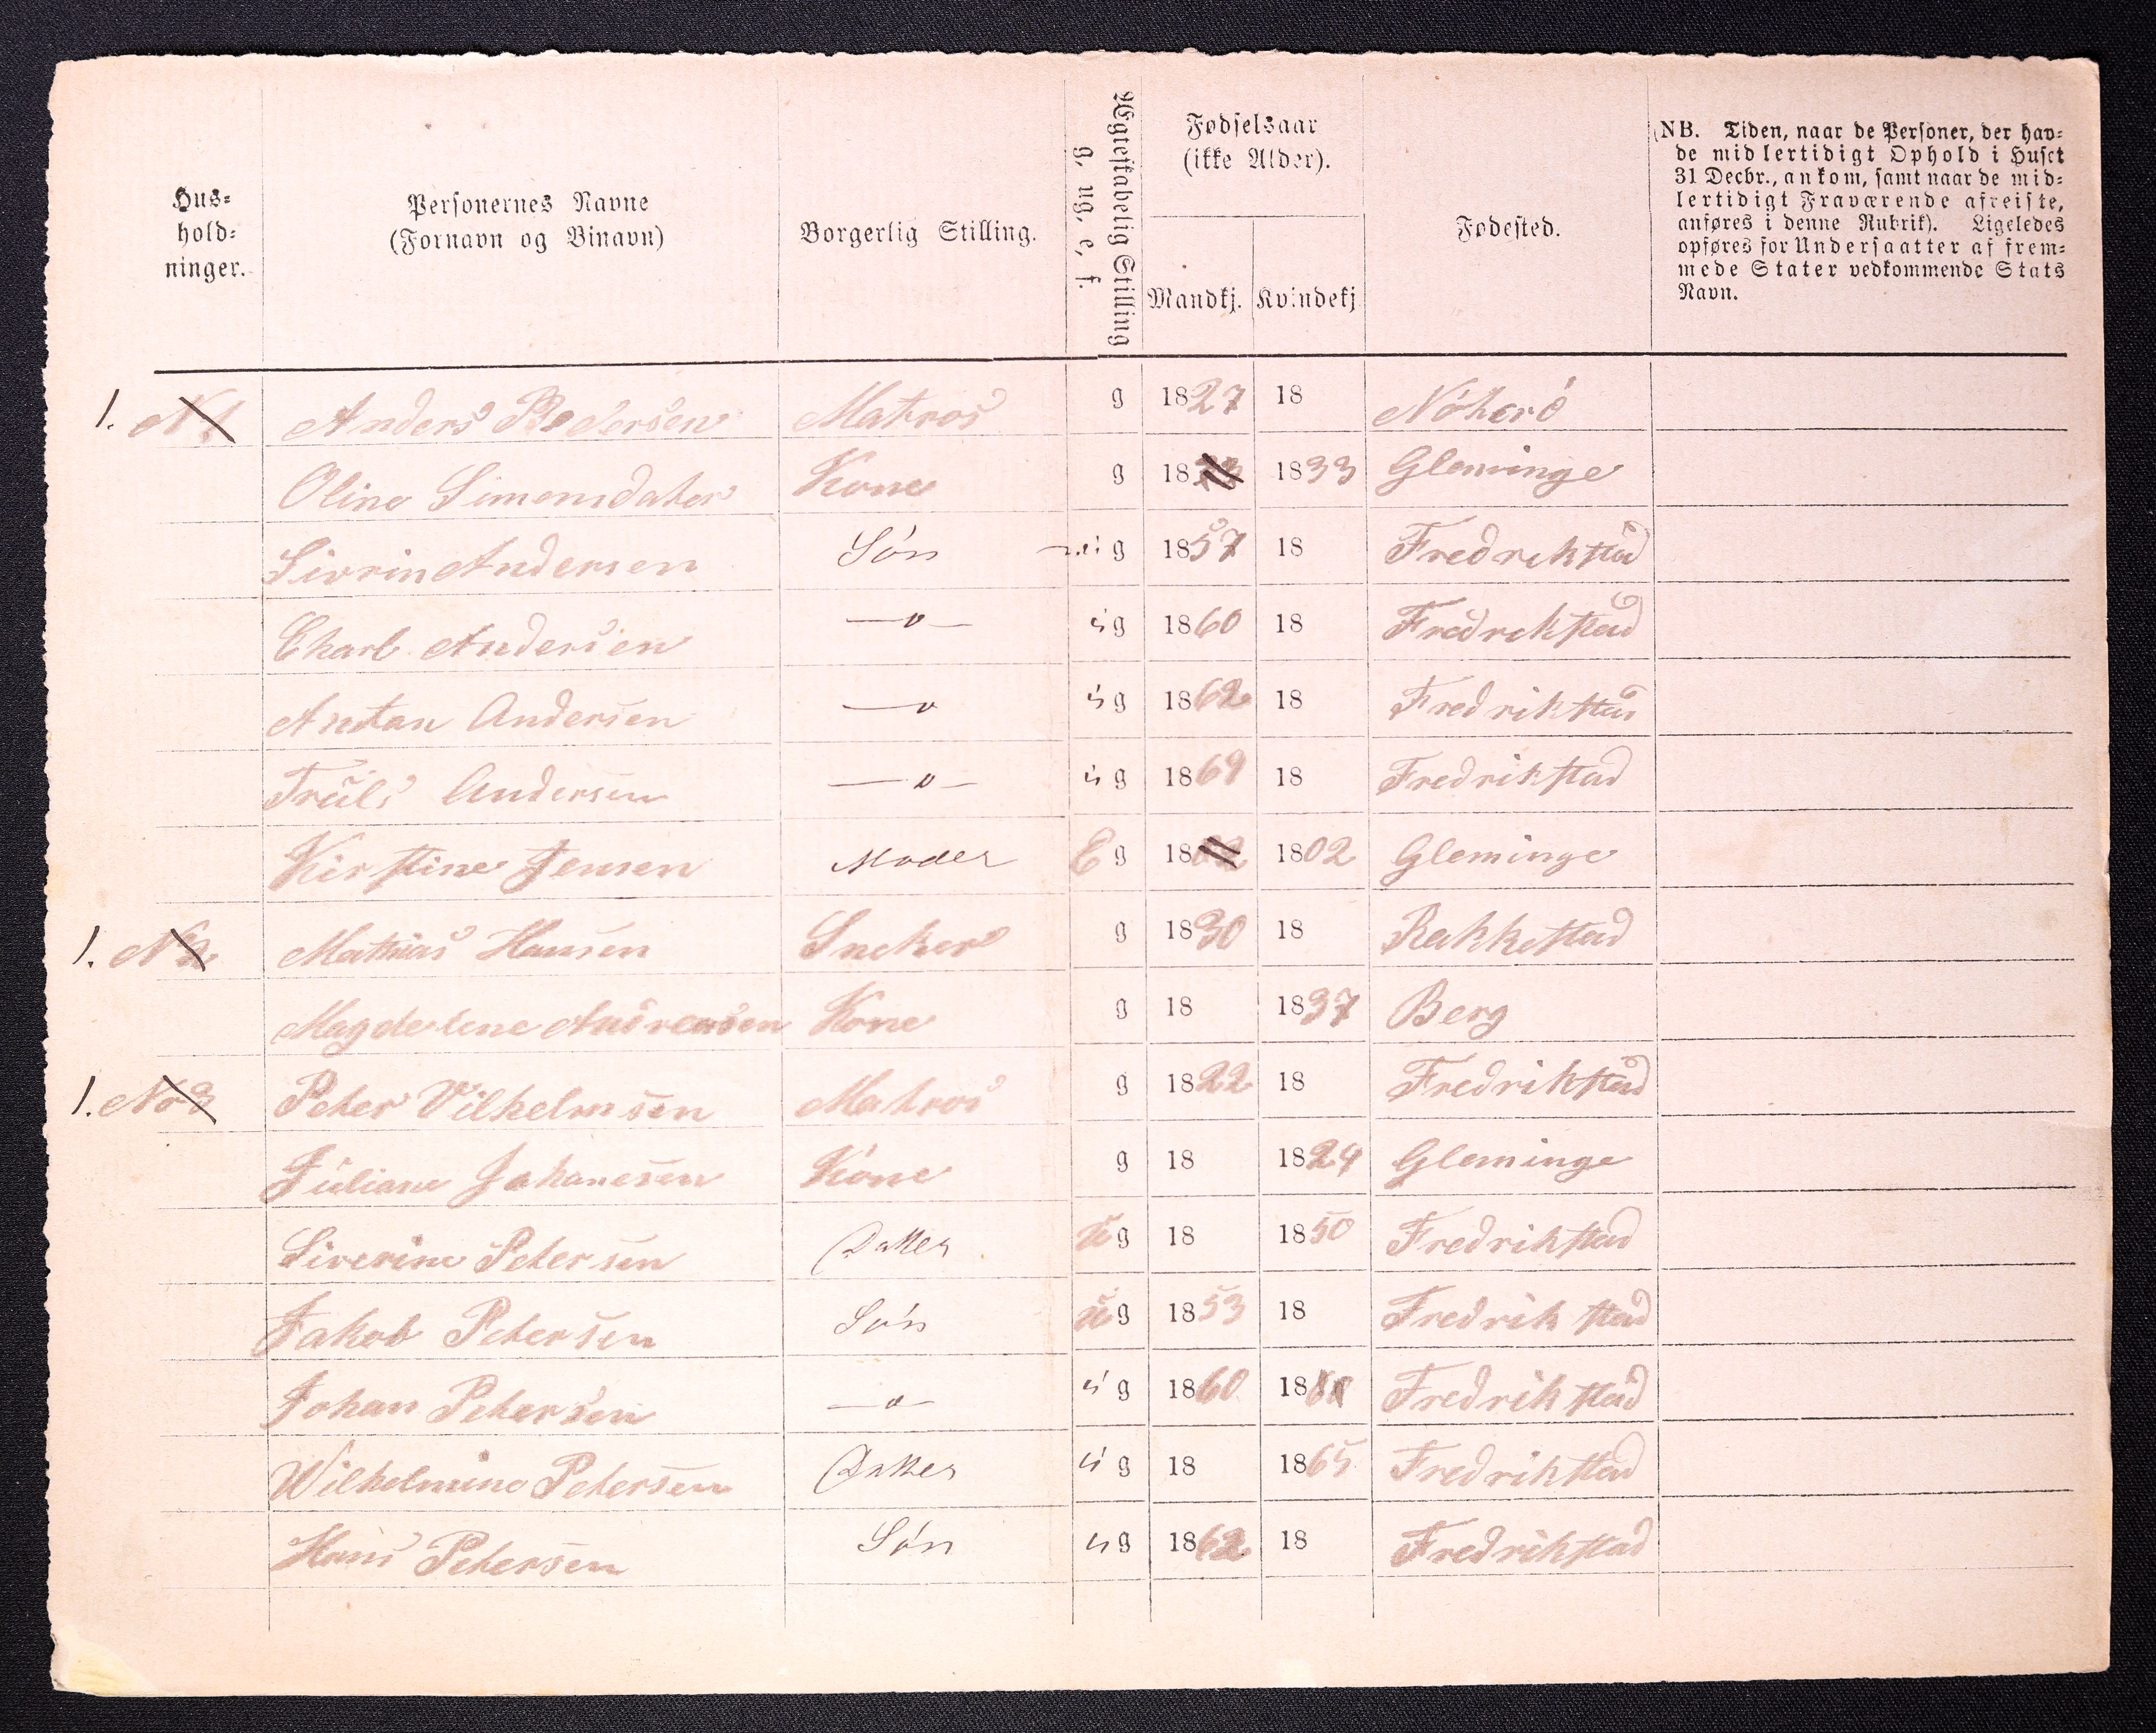 Hus-
hold-
ninger.
Personernes Navne
(Fornavn og Binavn)
Borgerlig Stilling.
Ægteskabelig Stilling
g, ug, e, f.
Fødselsaar
(ikke Alder).
Mandkj. Kvindekj
Fødested.
(NB. Tiden, naar de Personer, der hav-
de midlertidigt Ophold i Huset
31 Decbr., ankom, samt naar de mid-
lertidigt Fraværende afreiste,
anføres i denne Rubrik). Ligeledes
opføres for Undersaatter af frem-
mede Stater vedkommende Stats
Navn.
1. N1 Anders Pedersen Matros g 1827 18 Nöherö
Oline Simonsdater Kone g 18 1833 Gleminge
Sivrin Andersen Sön ug 1857 18 Fredrekstad
Charl Andersen —o— ug 1860 18 Fredrekstad
Antan Andersen —o ug 1862 18 Fredrikstad
Truls Andersen —o— ug 1869 18 Fredrikstad
Kirstine Jensen Moder E g 18 1802 Gleminge
1. N2 Mathias Hansen Sneker g 1830 18 Rakkestad
Magdelene Andreasen Kone g 18 1837 Berg
1. No 3 Peter Vilhelmsen Matros g 1822 18 Fredrikstad
Juliane Johanesen Kone g 18 1824 Gleminge
Siverine Petersen Datter ug 18 1850 Fredrikstad
Jakob Petersen Sön ug 1853 18 Fredrikstad
Johan Petersen —o— ug 1860 18 Fredrikstad
Wilhelmine Petersen Datter ug 18 1865 Fredrikstad
Hans Petersen Sön ug 1862 18 Fredrikstad